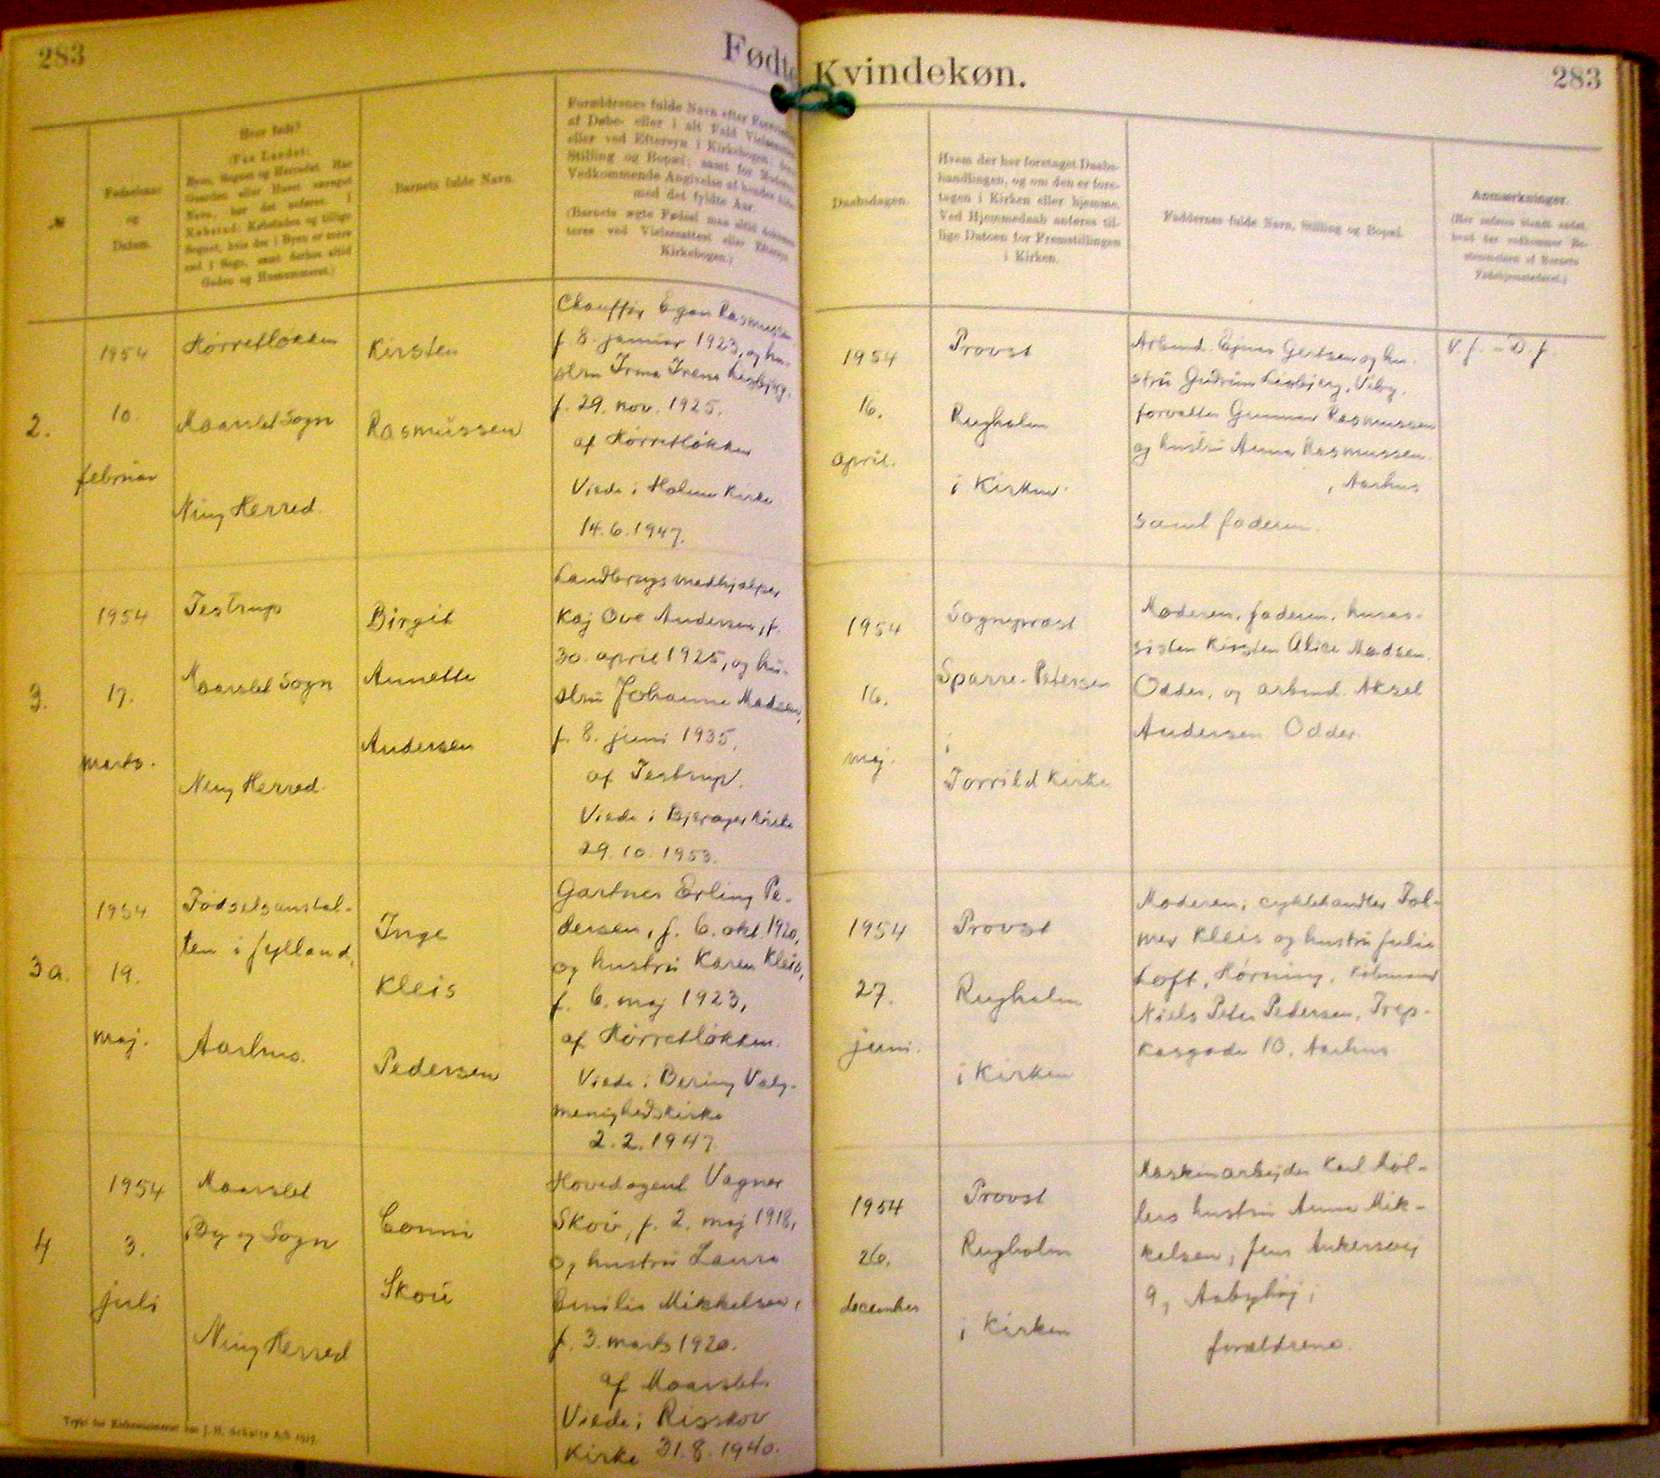 283
Fødte Kvindekøn.
283
№
Fødselsaar
og
Datum.
Hvor født?
(Paa Landet:
Byen, Sognet og Herredet. Har
Gaarden eller Huset særeget
Navn, bør det anføres. I
Købstad: Købstaden og tillige
Sognet, hvis der i Byen er mere
end 1 Sogn, samt derhos altid
Gaden og Husnummeret.)
Barnets fulde Navn.
Forældrenes fulde Navn efter
af Døbe- eller i alt Fald
eller ved Eftersyn i Kirkebogen;
Stilling og Bopæl; samt for
Vedkommende Angivelse af hendes
med det fyldte Aar.
(Barnets ægte Fødsel maa altid
teres ved Vielsesattest eller Eftersyn
Kirkebogen.)
Daabsdagen.
Hvem der har foretaget Daabs-
handlingen, og om den er fore-
tagen i Kirken eller hjemme.
Ved Hjemmedaab anføres til-
lige Datoen for Fremstillingen
i Kirken.
Faddernes fulde Navn, Stilling og Bopæl.
Anmærkninger.
(Her anføres blandt andet,
hvad der vedkommer Be-
stemmelsen af Barnets
Fødehjemsted.)
2.
1954
10
februar
Hørretløkken
Maarslet Sogn
Ning Herred.
Kirsten
Rasmussen
Chauffør Egon Rasmussen
f. 8. januar 1923, og hu-
stru Irma Irene
f. 29. nov. 1925.
af Hørretløkken
Viede i Holme Kirke
14.6.1947.
1954
16.
april.
Provst
Rugholm
i Kirken.
Arbmd. Ejner Gertsen og hu-
stru Gudrun Viby,
forvalter Gunnar Rasmussen
og hustru Anna Rasmussen
, Aarhus
samt faderen.
V. f. - D. f.
3.
1954
17.
marts.
Testrup
Maarslet Sogn
Ning Herred.
Birgit
Annette
Andersen
Landbrugsmedhjælper
Kaj Ove Andersen, f.
30. april 1925, og hu-
stru Johanne Madsen,
f. 8. juni 1935,
af Testrup.
Viede i Bjerager Kirke
29.10.1953.
1954
16.
maj.
Sognepræst
Sparre-Petersen
i
Torrild Kirke
Moderen, faderen, husas-
sisten Kirsten Alice Madsen.
Odder, og arbmd. Aksel
Andersen Odder.
3a.
1954
19.
maj.
Fødselsanstal-
ten i Jylland,
Aarhus.
Inge
Kleis
Pedersen
Gartner Erling Pe-
dersen, f. 6. okt. 1920,
og hustru Karen Kleis,
f. 6. maj 1923,
af Hørretløkken.
Viede i Bering Valg-
menighedskirke
2.2.1947
1954
27.
juni.
Provst
Rugholm
i Kirken
Moderen, cyklehandler Fol-
mer Kleis og hustru Julie
Loft, Hørning, Købmand
Niels Peter Pedersen, Trep-
kasgade 10, Aarhus
4
1954
3.
juli
Maarslet
By og Sogn
Ning Herred
Conni
Skou
Hovedagent Vagner
Skou, f. 2. maj 1918,
og hustru Laura
Emilie Mikkelsen,
f. 3. marts 1920.
af Maarslet.
Viede i Risskov
Kirke 31.8.1940.
1954
26.
december
Provst
Rugholm
i Kirken
Maskinarbejder Karl Møl-
lers hustru Anna Mik-
kelsen, Jens Ankersvej
9, Aabyhøj,
forældrene.
Trykt hos Kirkeministeriet hos J. H. Schultz A/S 1937.